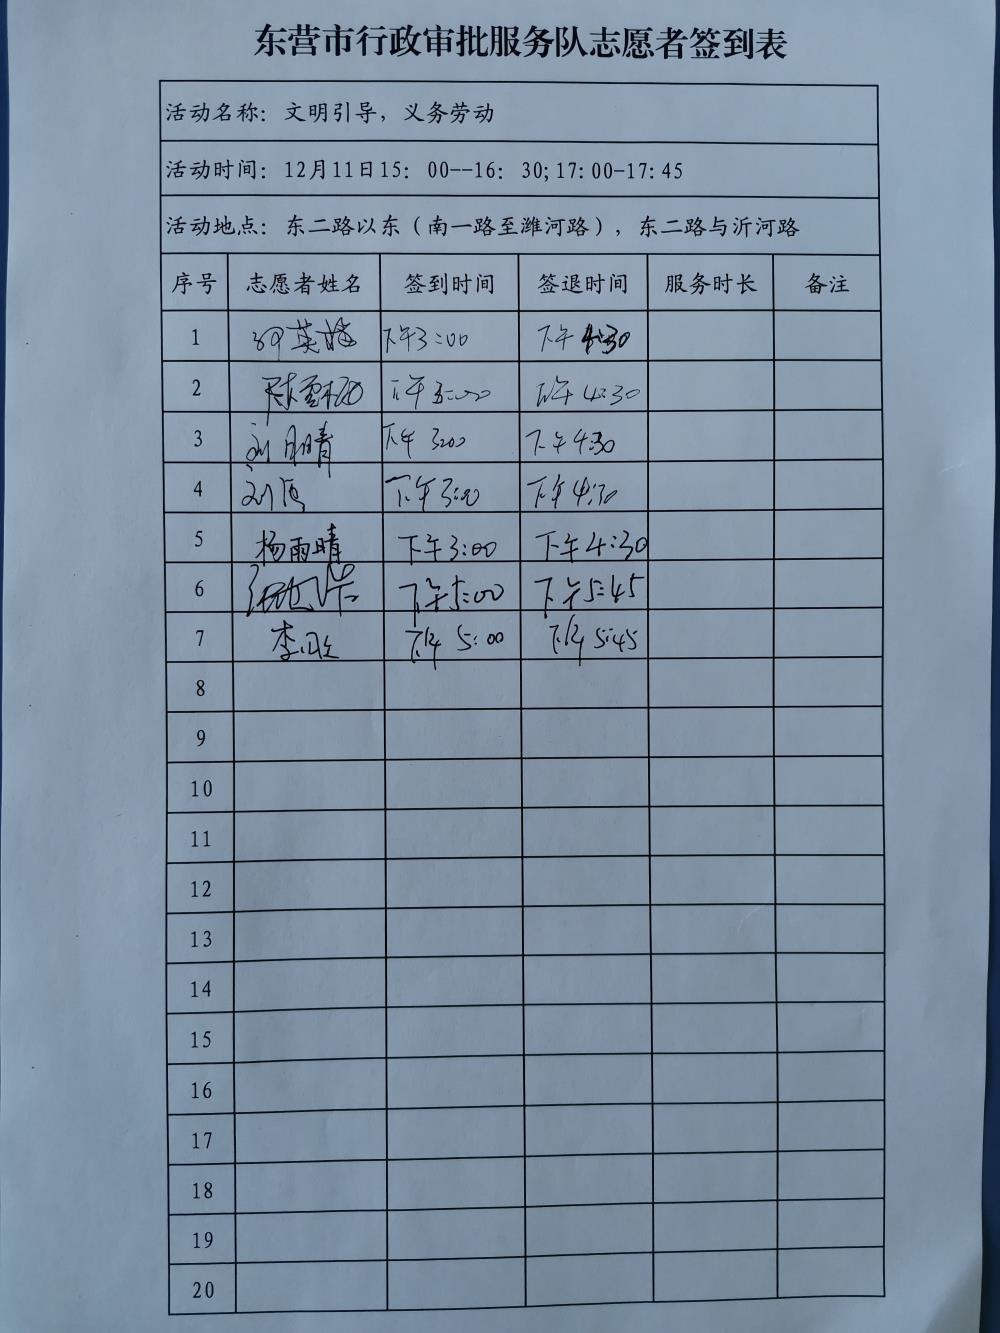 东营市行政审批服务队志愿者签到表
活动名称：文明引导，义务劳动
活动时间：12月11日15：00--16：30;17:00-17:45
活动地点：东二路以东（南一路至潍河路），东二路与沂河路
序号 志愿者姓名 签到时间 签退时间 服务时长 备注
1 英梅 下午3:00 下午4:30
2 下午3:00 下午4:30
3 刘明晴 下午3:00 下午4:30
4 刘 下午3:00 下午4:30
5 杨雨晴 下午3:00 下午4:30
6 下午5:00 下午5:45
7 李 下午5:00 下午5:45
8
9
10
11
12
13
14
15
16
17
18
19
20